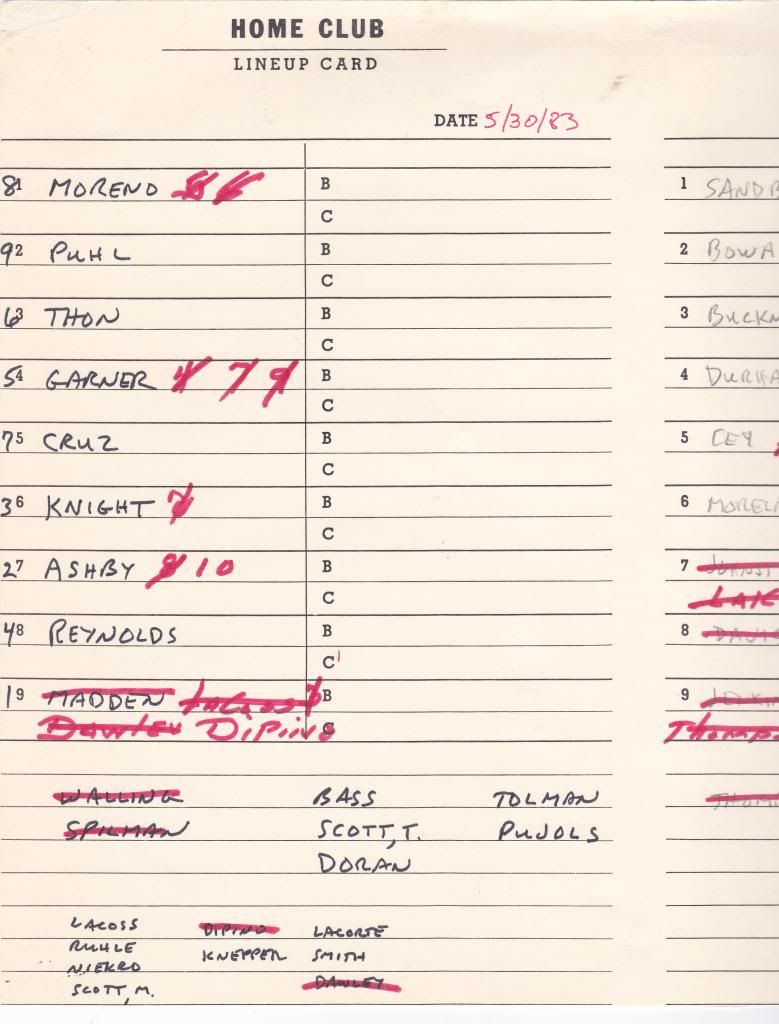 HOME CLUB
LINEUP CARD
DATE 5/30/83
8 1 MORENO B
C
9 2 PUHL B
C
6 3 THON B
C
5 4 GARNER 4 7 9 B
C
7 5 CRUZ B
C
3 6 KNIGHT 7 B
C
2 7 ASHBY 8 10 B
C
4 8 REYNOLDS B
C
1 9 MADDEN LaCoss B
Dawley DiPino C
WALLING BASS TOLMAN
SPILMAN SCOTT, T. PUJOLS
DORAN
LACOSS DIPINO LACORTE
RUHLE KNEPPER SMITH
NIEKRO DAWLEY
SCOTT, M.
1 SANDB
2 BOWA
3 BUCKN
4 DURHA
5 CEY
6 MOREL
7
LAK
8 DAVIS
9 JENKIN
Thomps
THOM